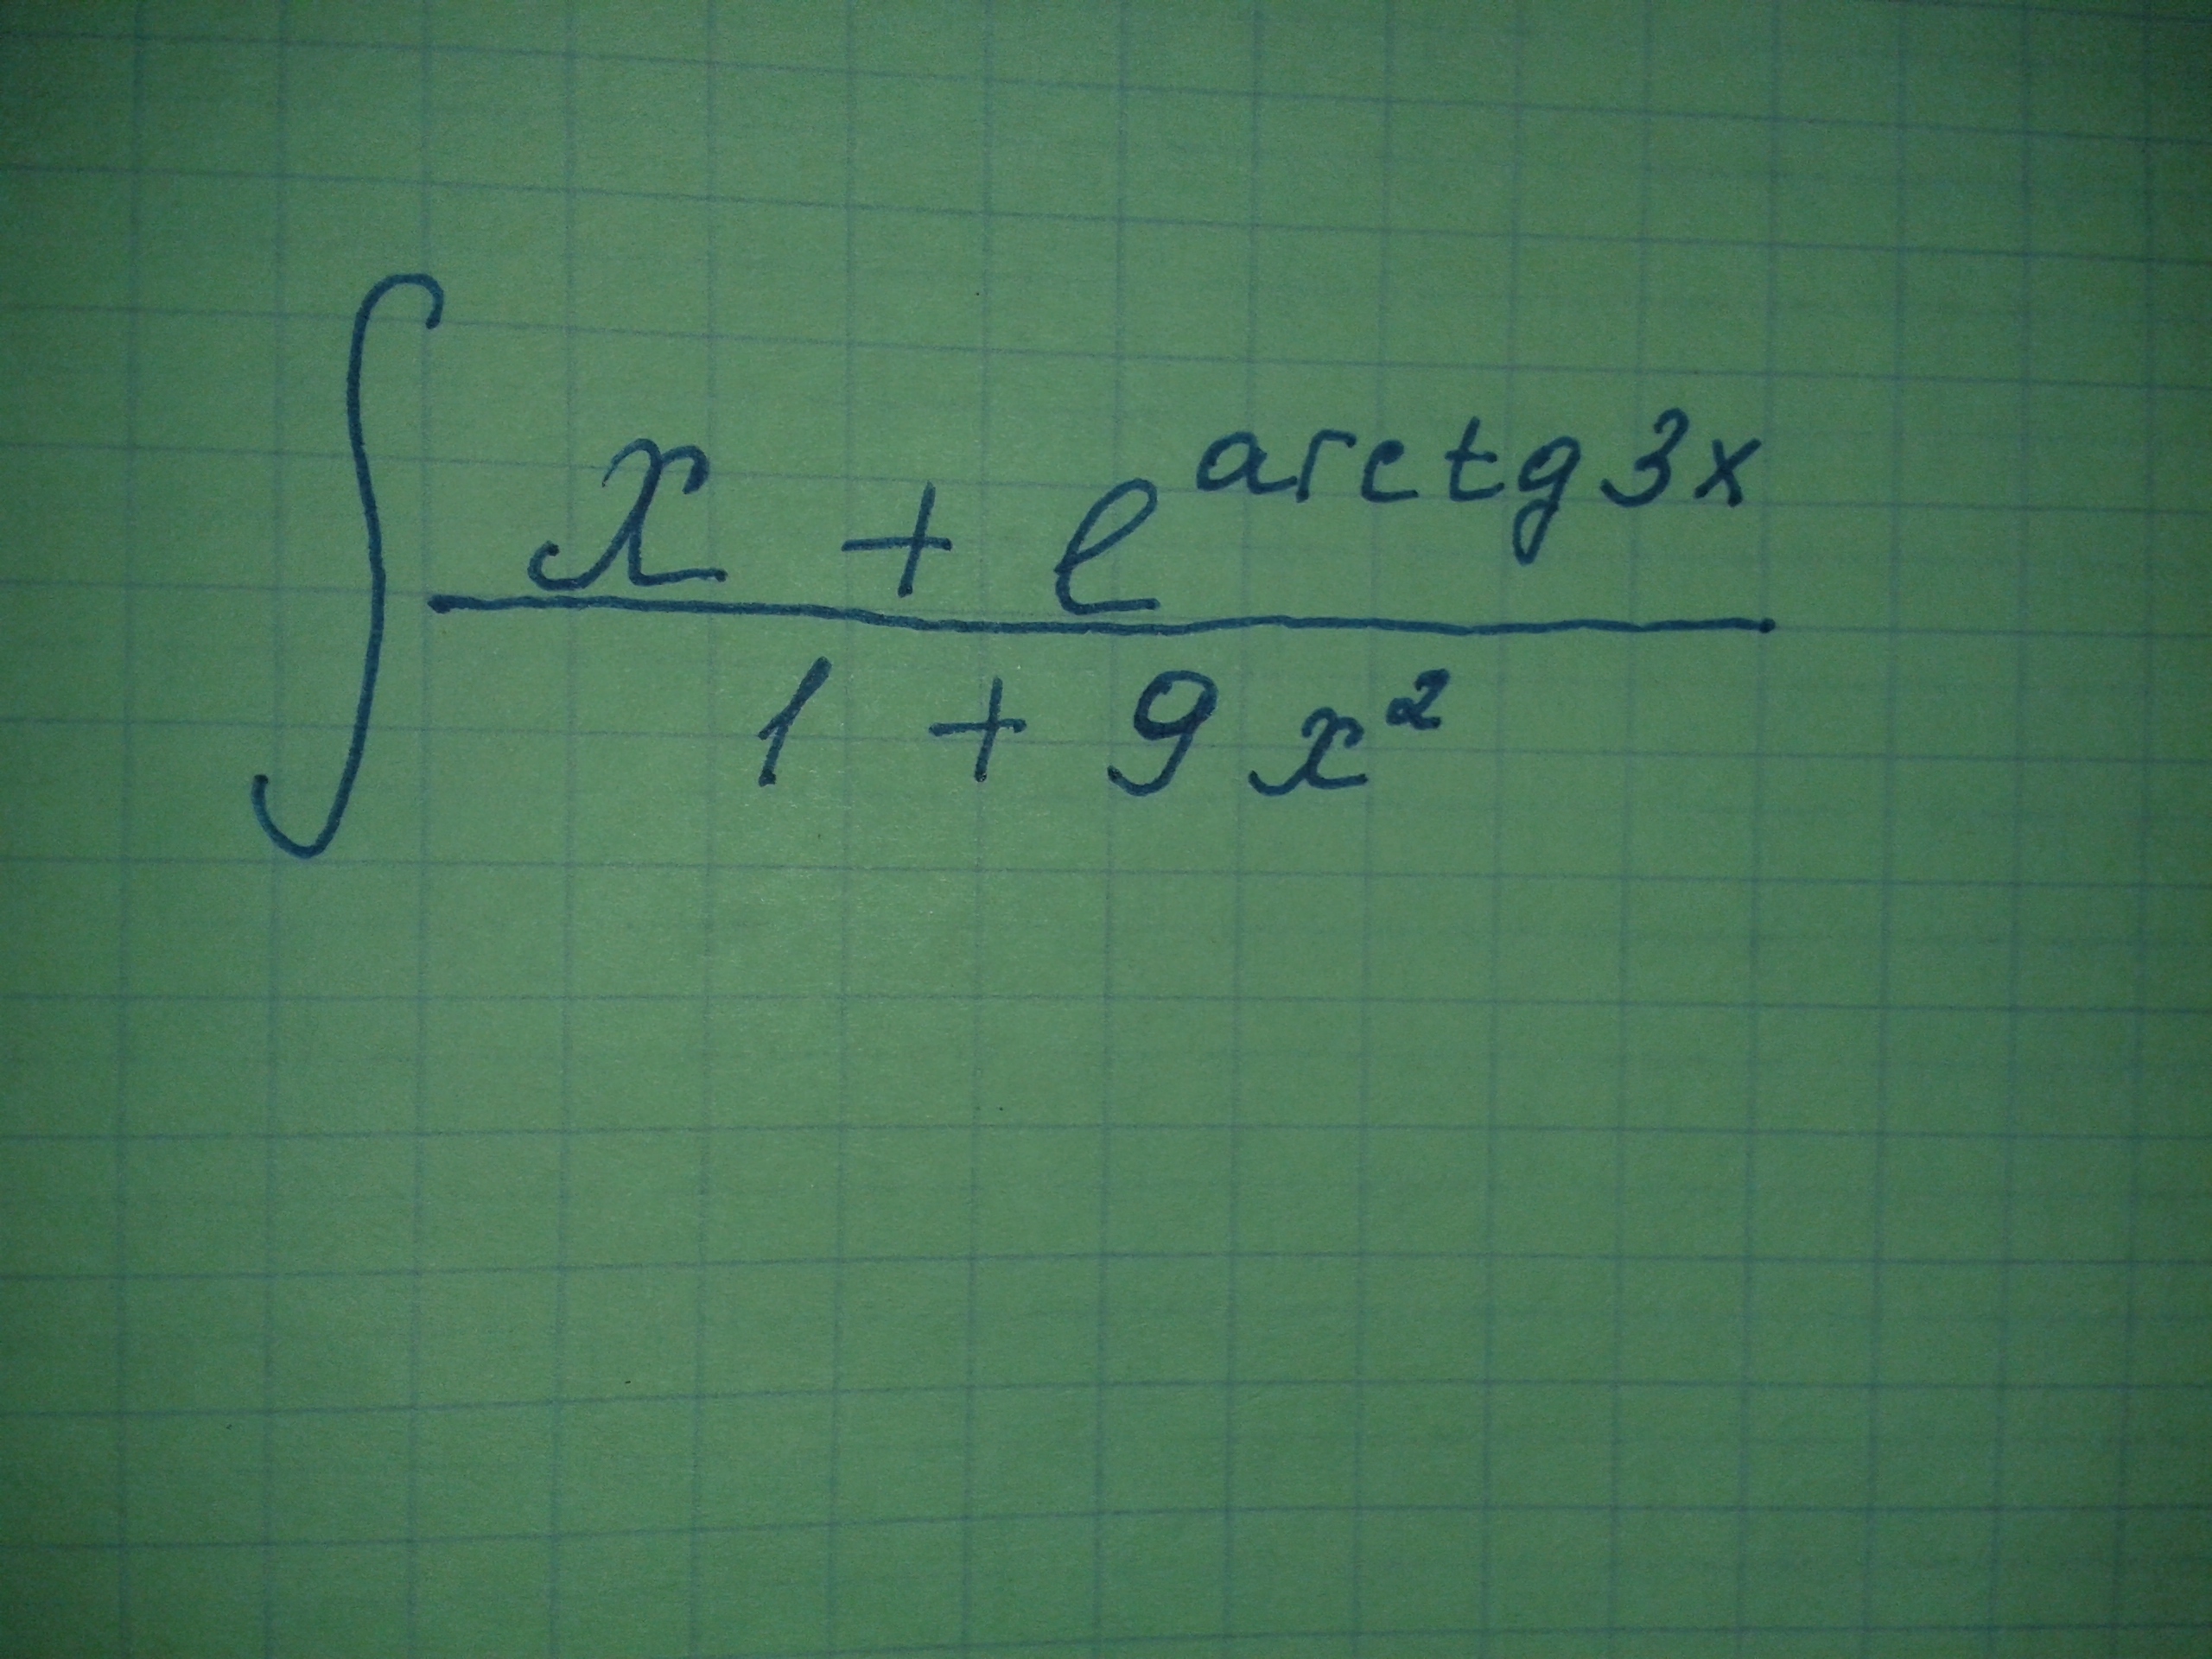 ∫ (x + e^(arctg 3x)) / (1 + 9x²)